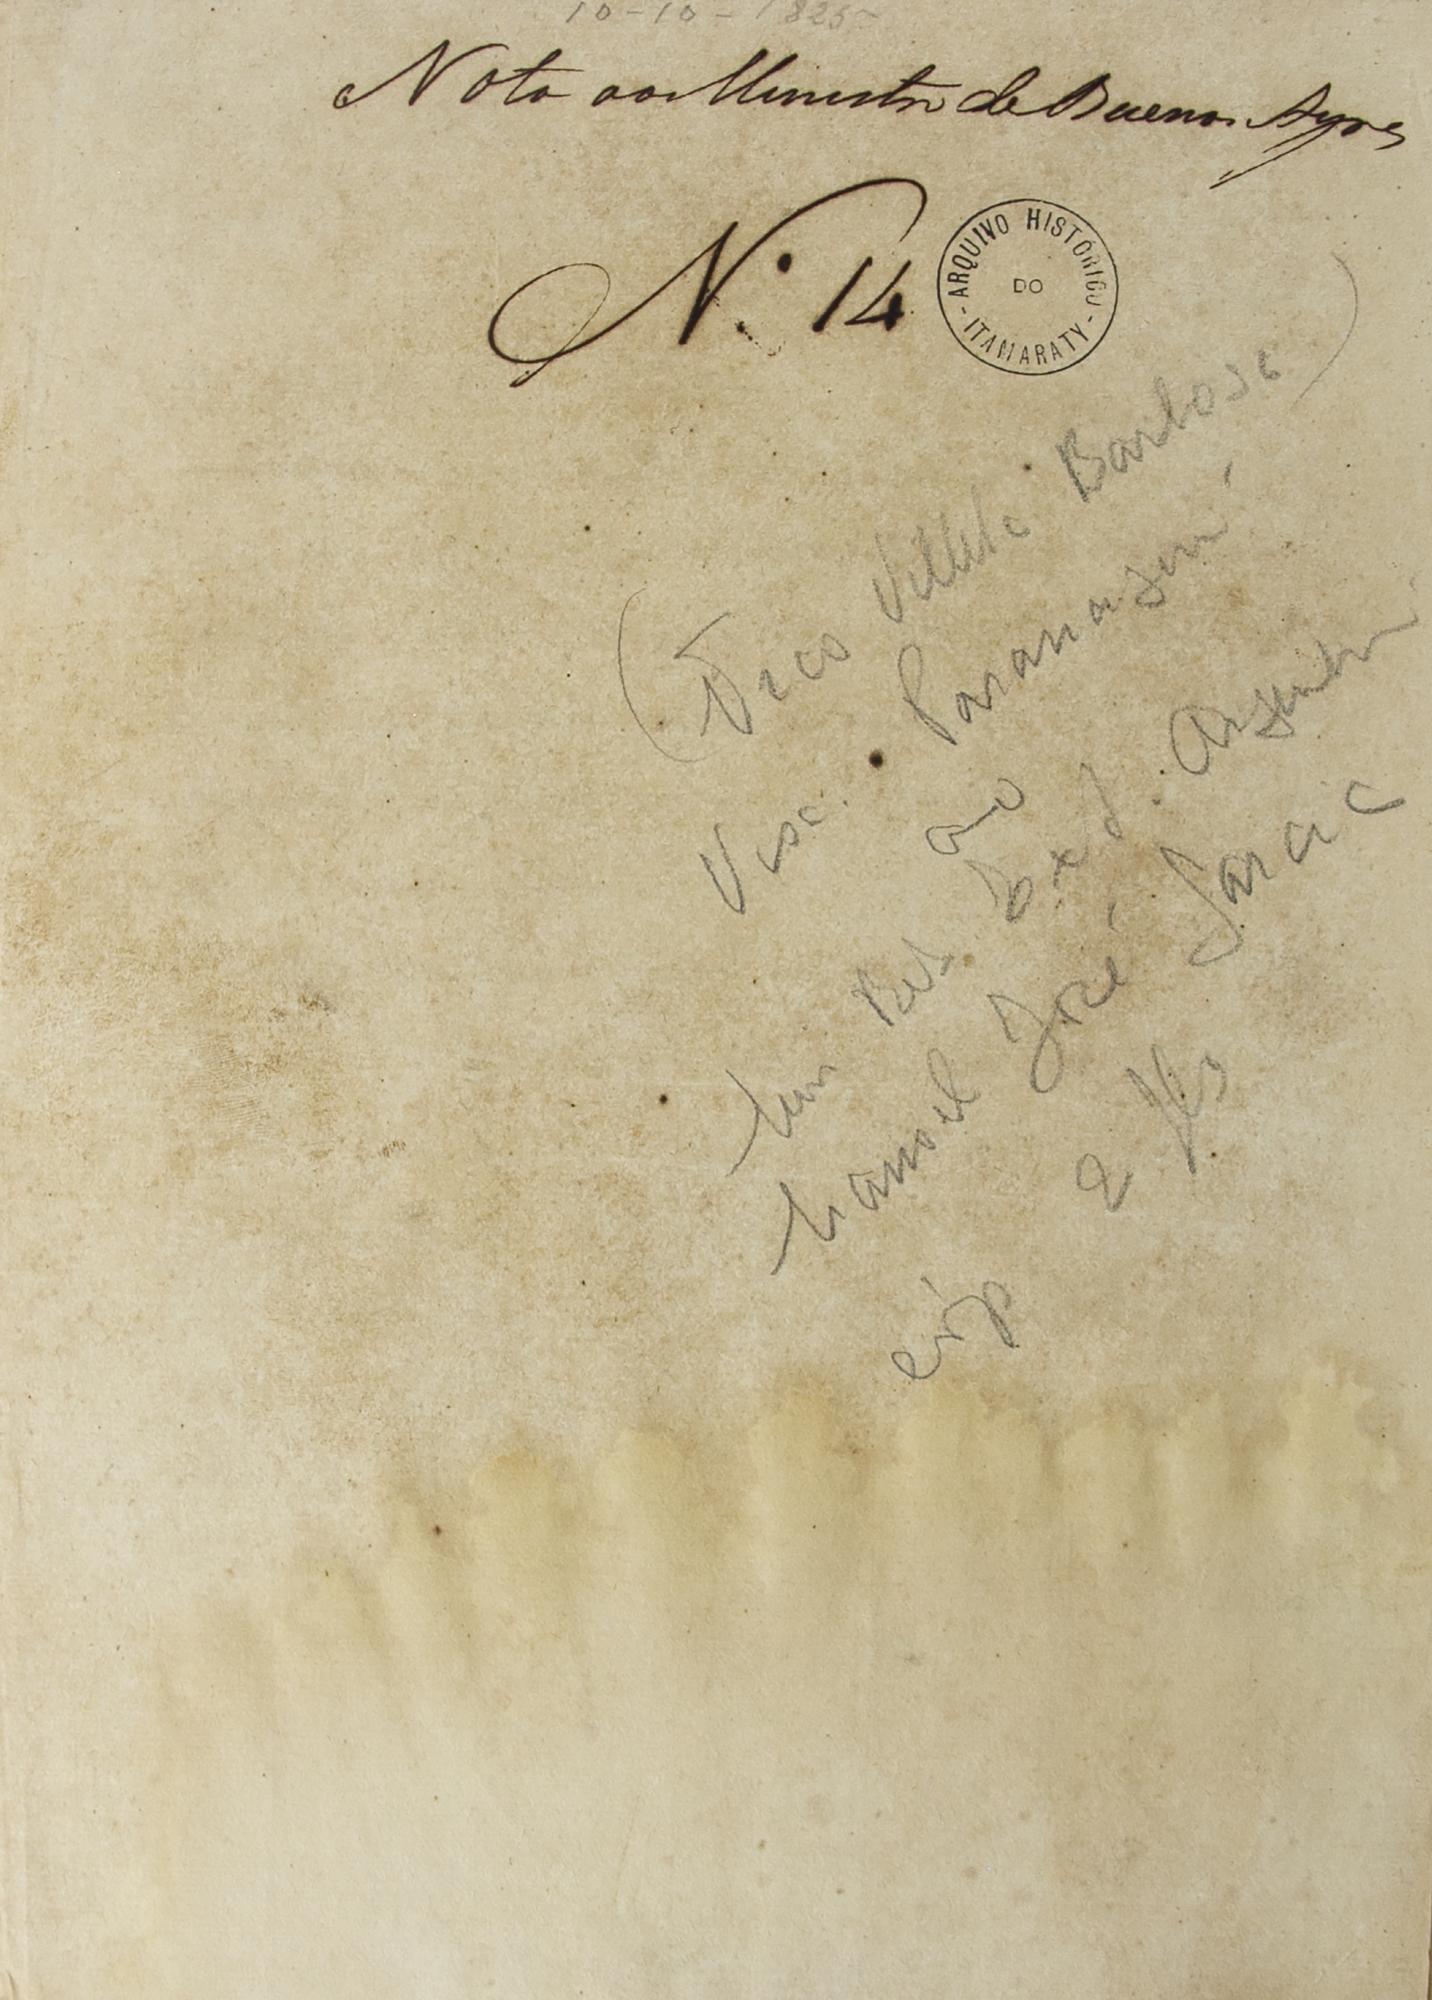 10-10-1825
Nota ao Ministro de Buenos Ayres
N.º 14
ARQUIVO HISTÓRICO DO ITAMARATY
(Frco Villela Barbosa)
Visc. Paranaguá
ao
Min Rel. Ext. Argentin
Manoel José Garcia
cóp 2 fls